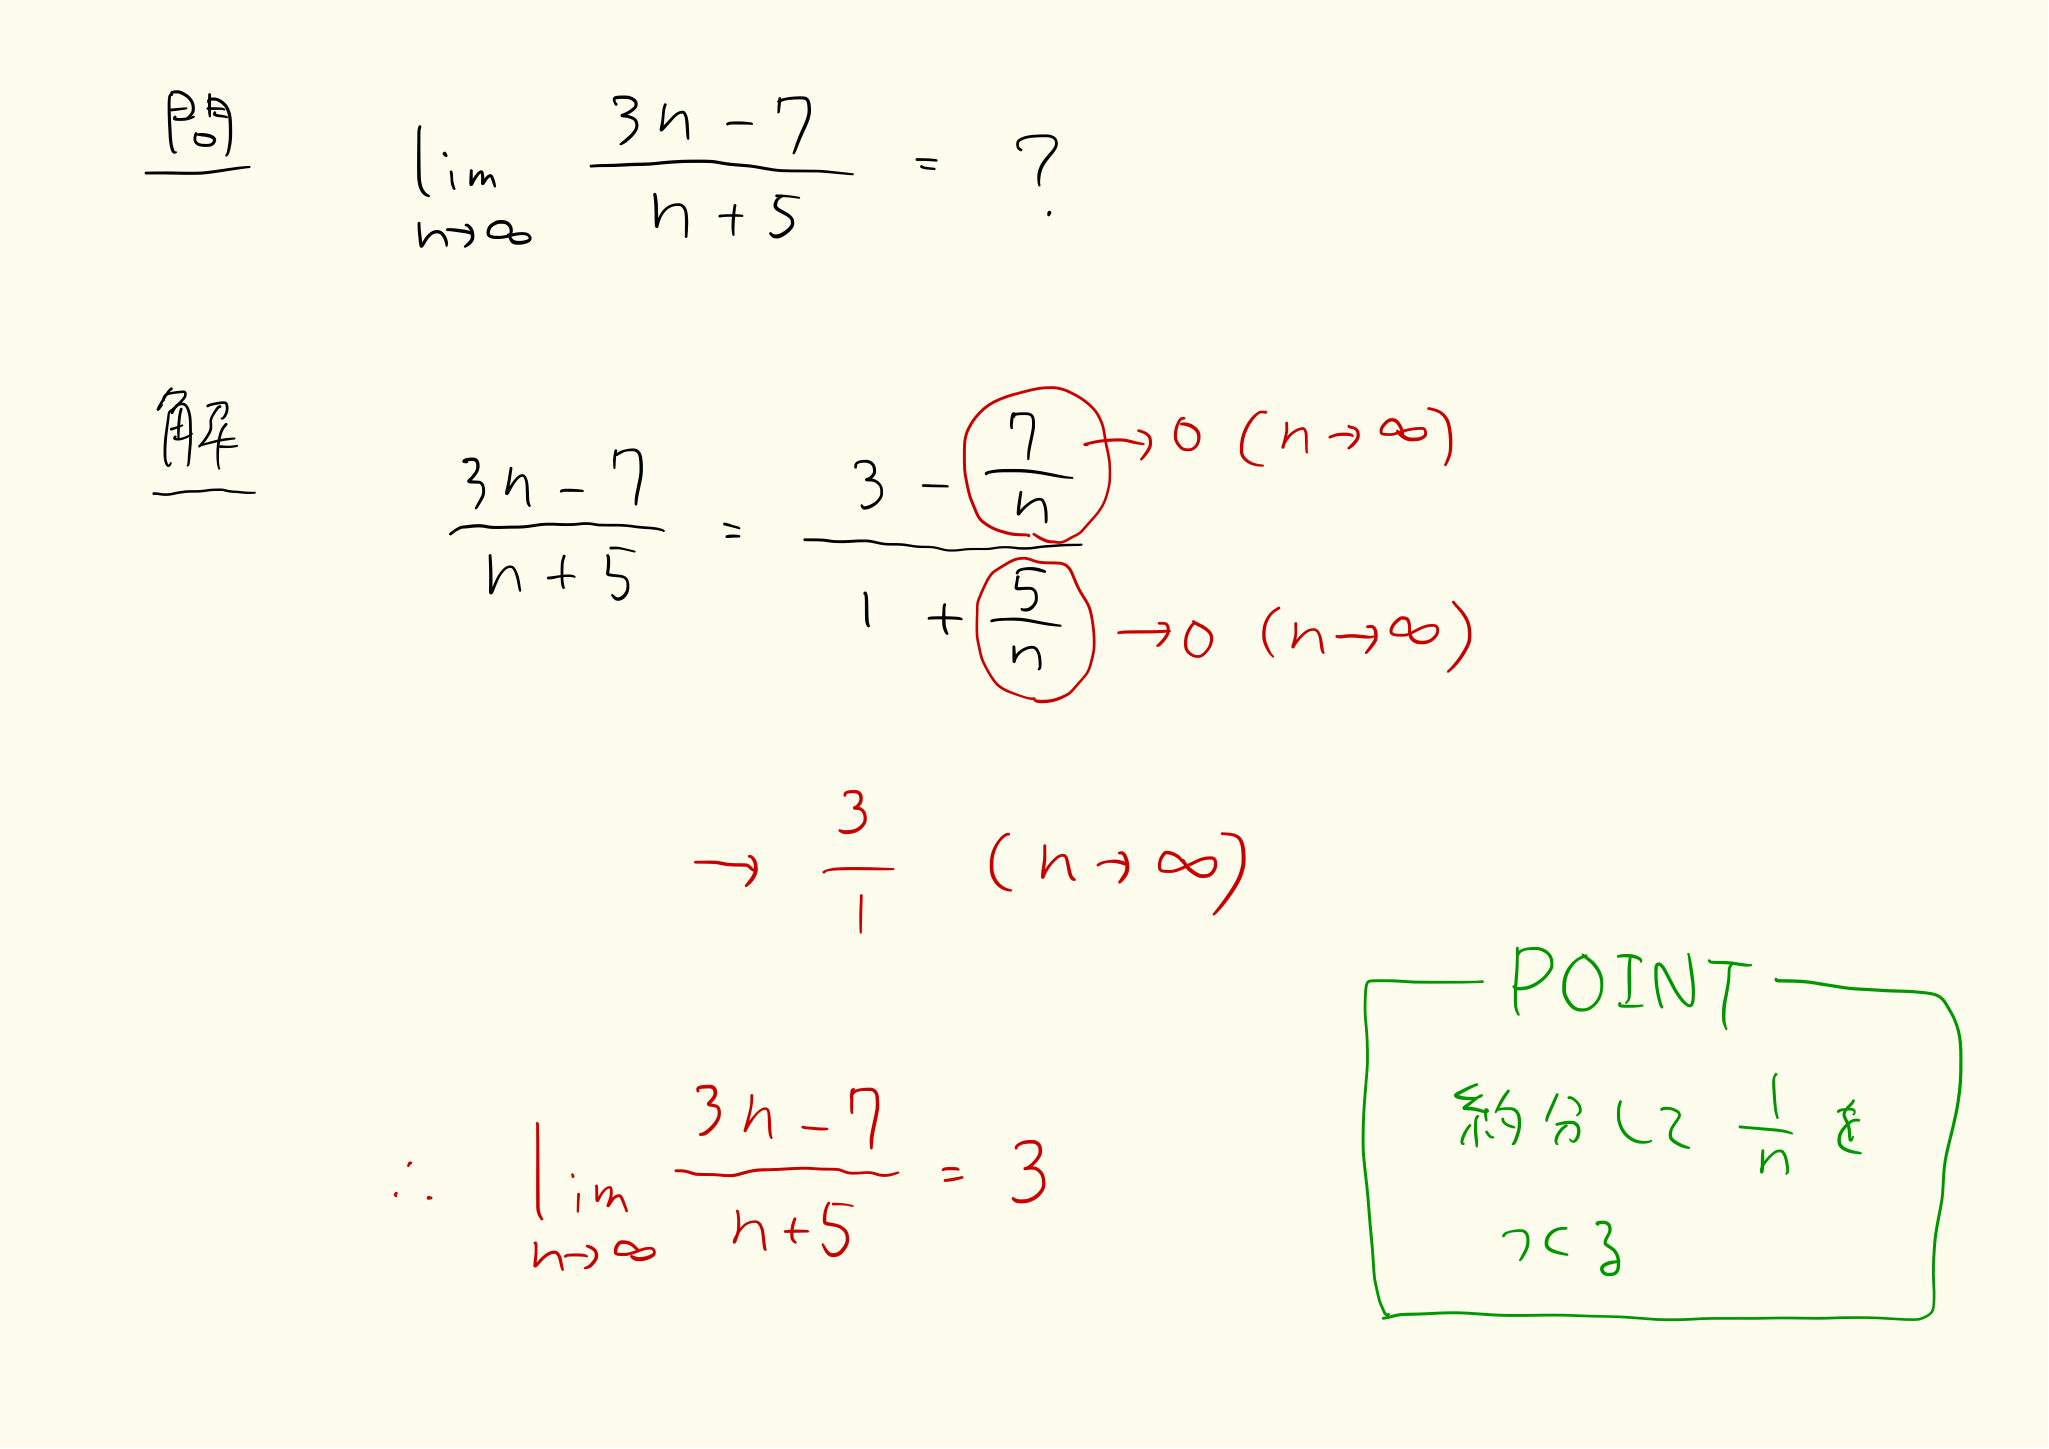 問 lim n→∞ (3n-7)/(n+5) = ?
解
(3n-7)/(n+5) = (3 - 7/n)/(1 + 5/n)
→ 0 (n→∞)
→ 0 (n→∞)
→ 3/1 (n→∞)
∴ lim n→∞ (3n-7)/(n+5) = 3
POINT
約分して 1/n を
つくる